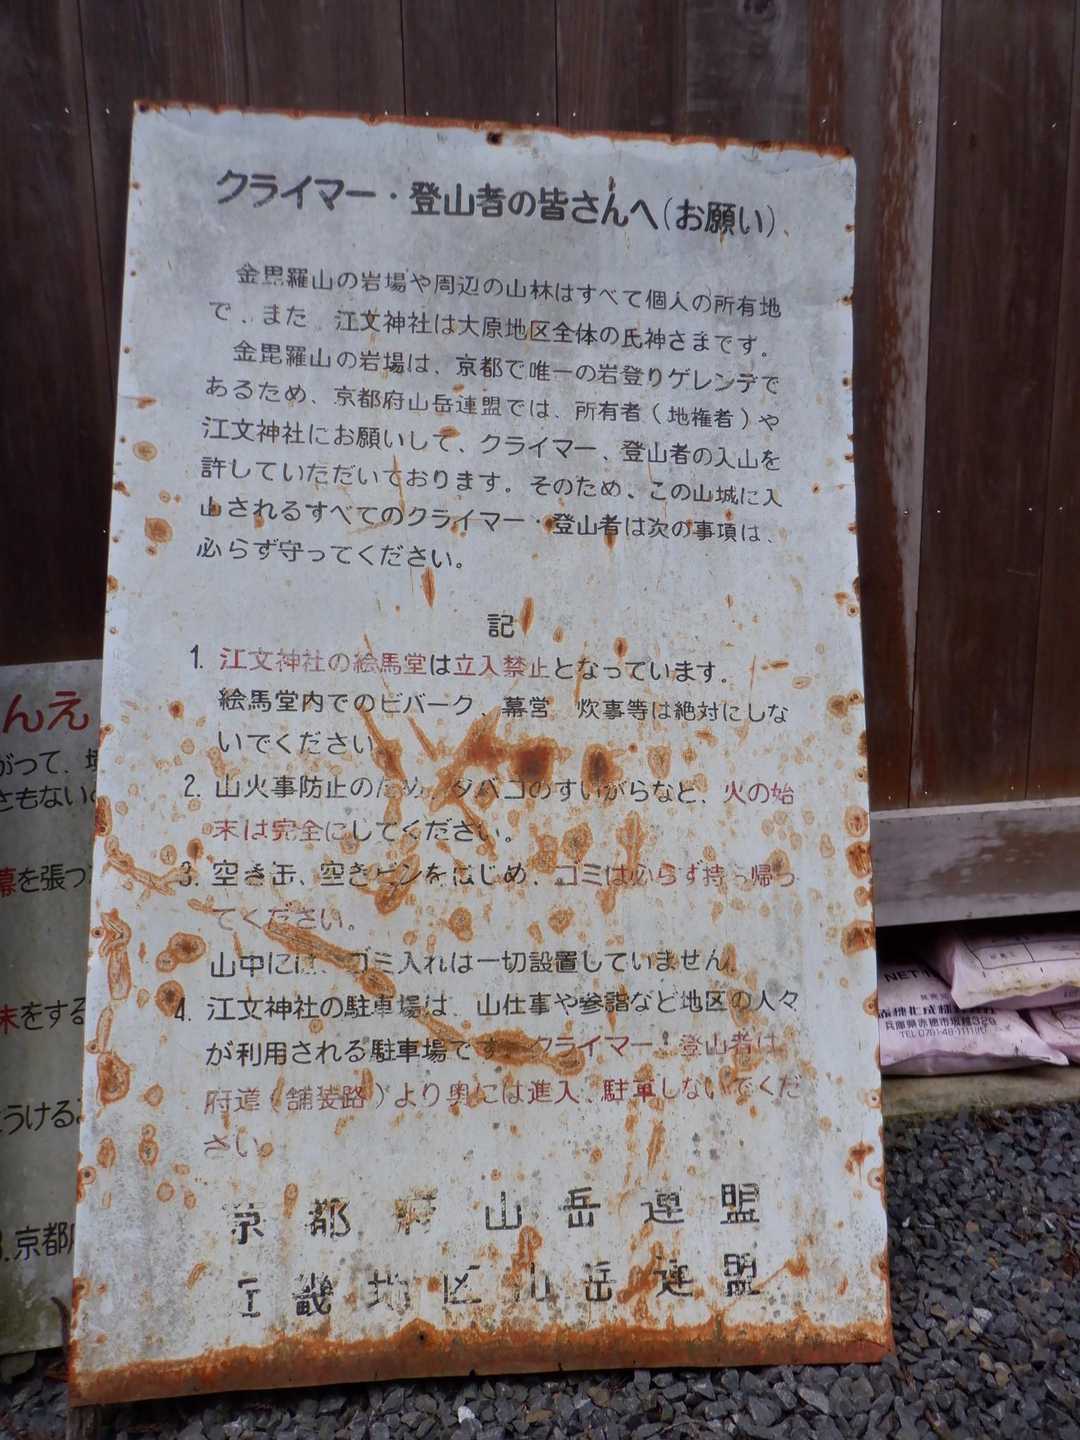 クライマー・登山者の皆さんへ(お願い)
金毘羅山の岩場や周辺の山林はすべて個人の所有地
で、また 江文神社は大原地区全体の氏神さまです。
金毘羅山の岩場は、京都で唯一の岩登りゲレンデで
あるため、京都府山岳連盟では、所有者(地権者)や
江文神社にお願いして、クライマー、登山者の入山を
許していただいております。そのため、この山城に入
山されるすべてのクライマー・登山者は次の事項は、
必らず守ってください。
記
1. 江文神社の絵馬堂は立入禁止となっています。
絵馬堂内でのビバーク、幕営 炊事等は絶対にしな
いでください。
2. 山火事防止のため、タバコのすいがらなど、火の始
末は完全にしてください。
3. 空き缶、空きビンをはじめ、ゴミは必らず持ち帰っ
てください。
山中には、ゴミ入れは一切設置していません。
4. 江文神社の駐車場は、山仕事や参詣など地区の人々
が利用される駐車場です。クライマー、登山者は
府道(舗装路)より奥には進入、駐車しないでくだ
さい。
京都府山岳連盟
近畿地区山岳連盟
んえ
がって、
さもない
幕を張つ
末をする
うける
京都
NET
兵庫県赤穂市坂越329